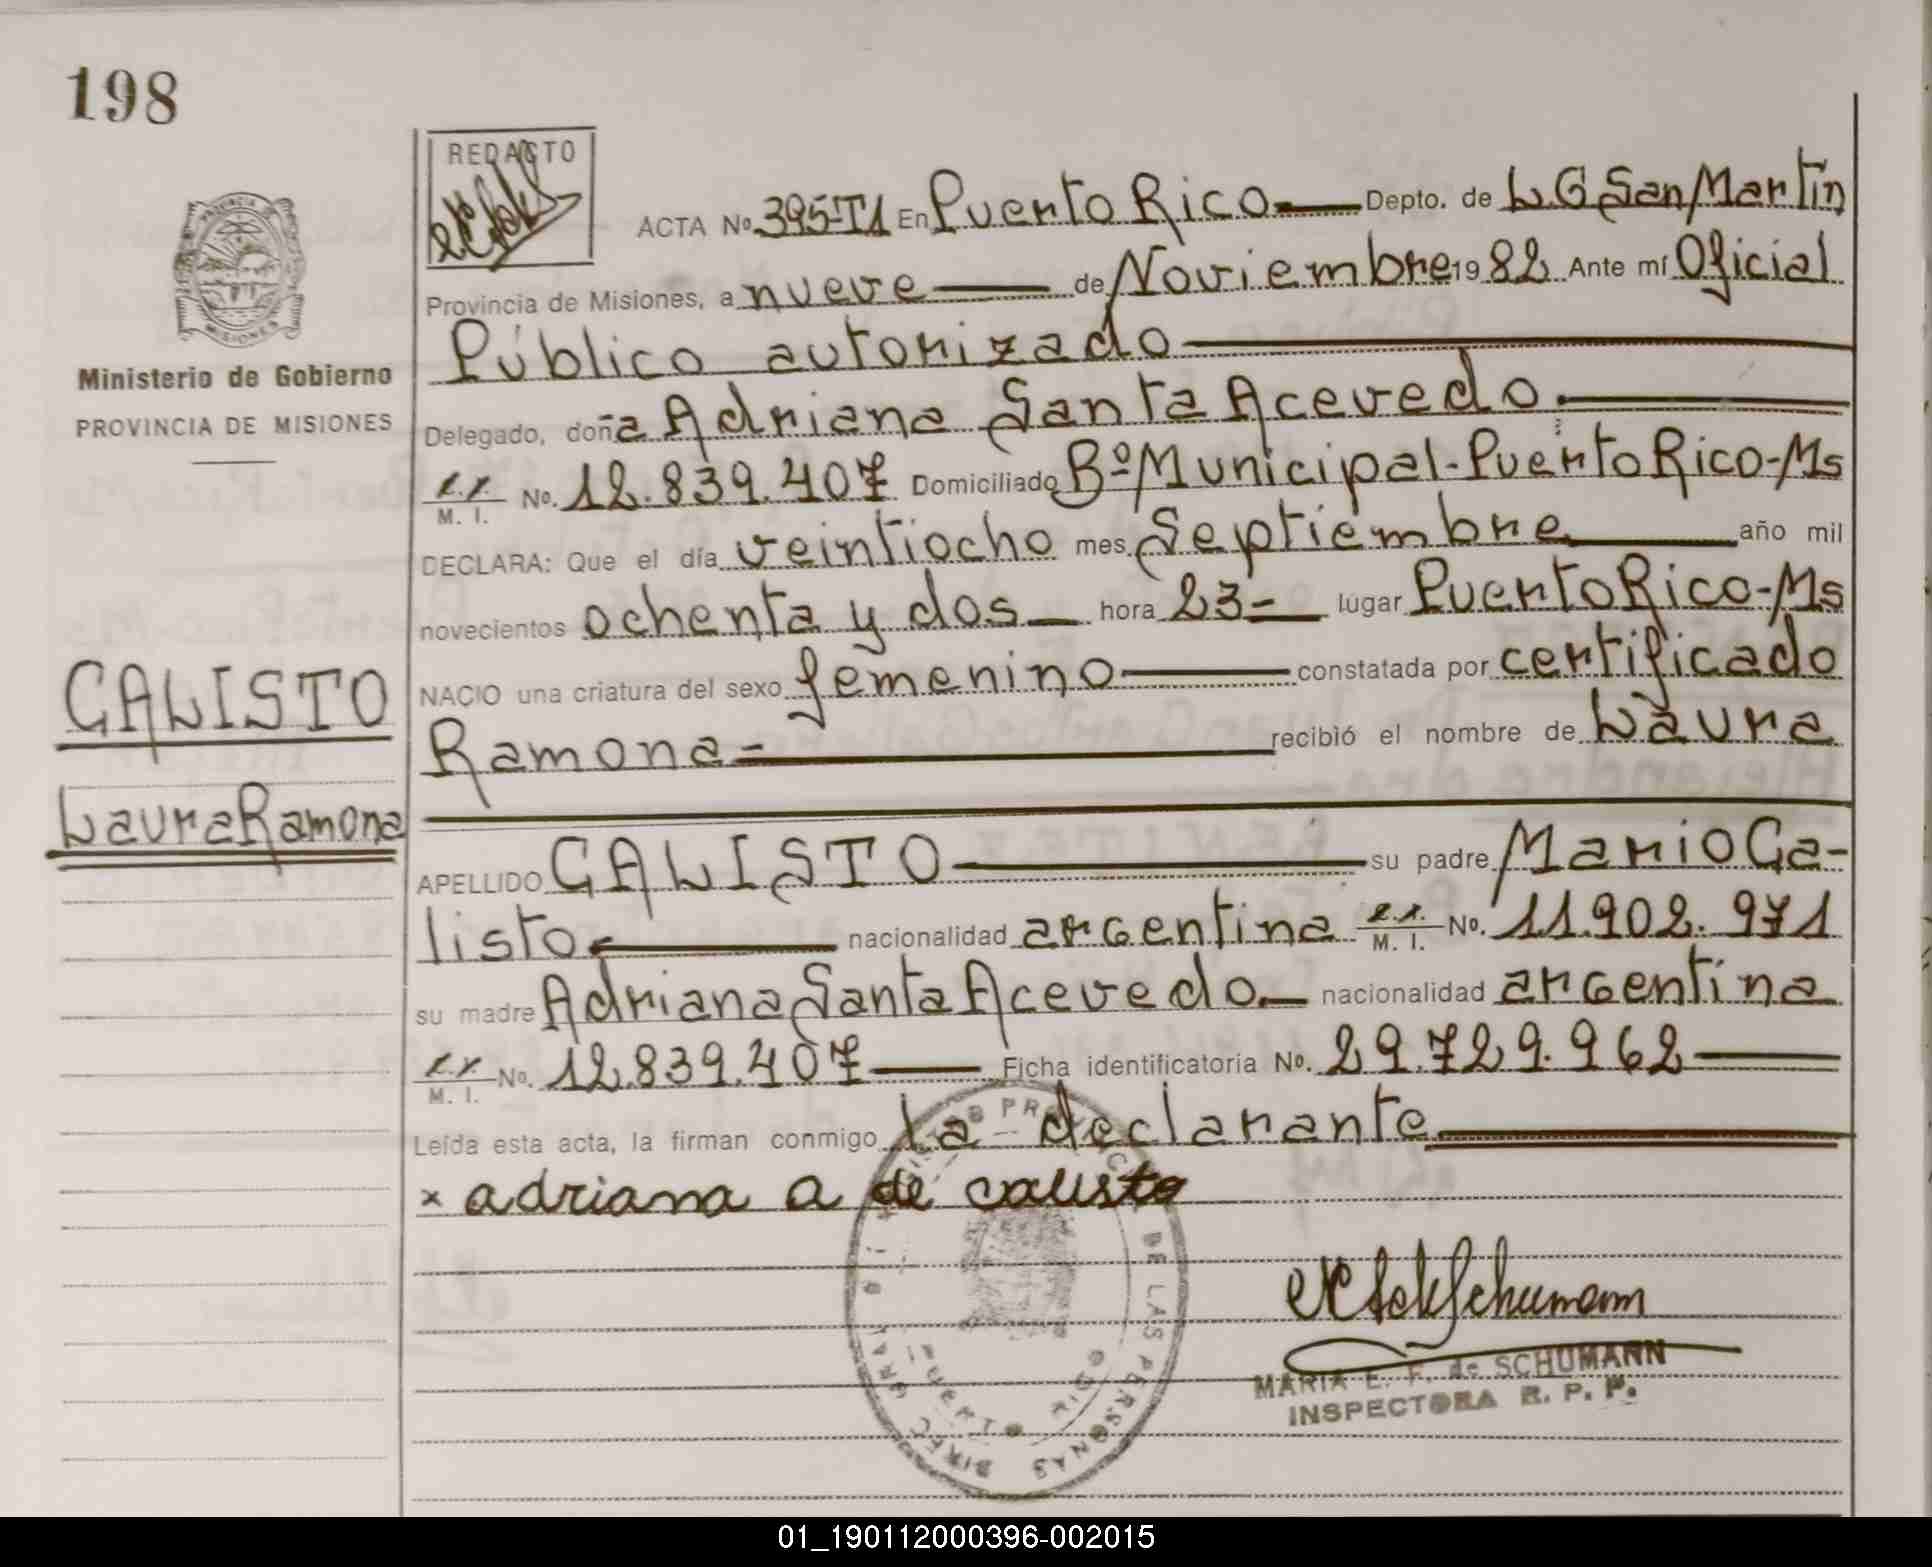 198
REDACTO
ACTA No. 395-T1 En Puerto Rico Depto. de L.G San Martín
Provincia de Misiones, a nueve de Noviembre 1982 Ante mí Oficial
Público autorizado
Delegado, doña Adriana Santa Acevedo.
M. I. No. 12.839.407 Domiciliado Bº Municipal-Puerto Rico-Ms
DECLARA: Que el día veintiocho mes Septiembre año mil
novecientos ochenta y dos hora 23- lugar Puerto Rico-Ms
NACIO una criatura del sexo femenino constatada por certificado
Ramona- recibió el nombre de Laura
APELLIDO CALISTO su padre Mario Ca-
listo nacionalidad argentina M. I. No. 11.902.971
su madre Adriana Santa Acevedo nacionalidad argentina
M. I. No. 12.839.407 Ficha identificatoria No. 29.729.962
Leída esta acta, la firman conmigo la declarante
x adriana a de calisto
MARIA E. F. de SCHUMANN
INSPECTORA R. P. P.
PROVINCIA DE
MISIONES
Ministerio de Gobierno
PROVINCIA DE MISIONES
CALISTO
Laura Ramona
DE LAS PERSONAS
PUERTO RICO
01_190112000396-002015